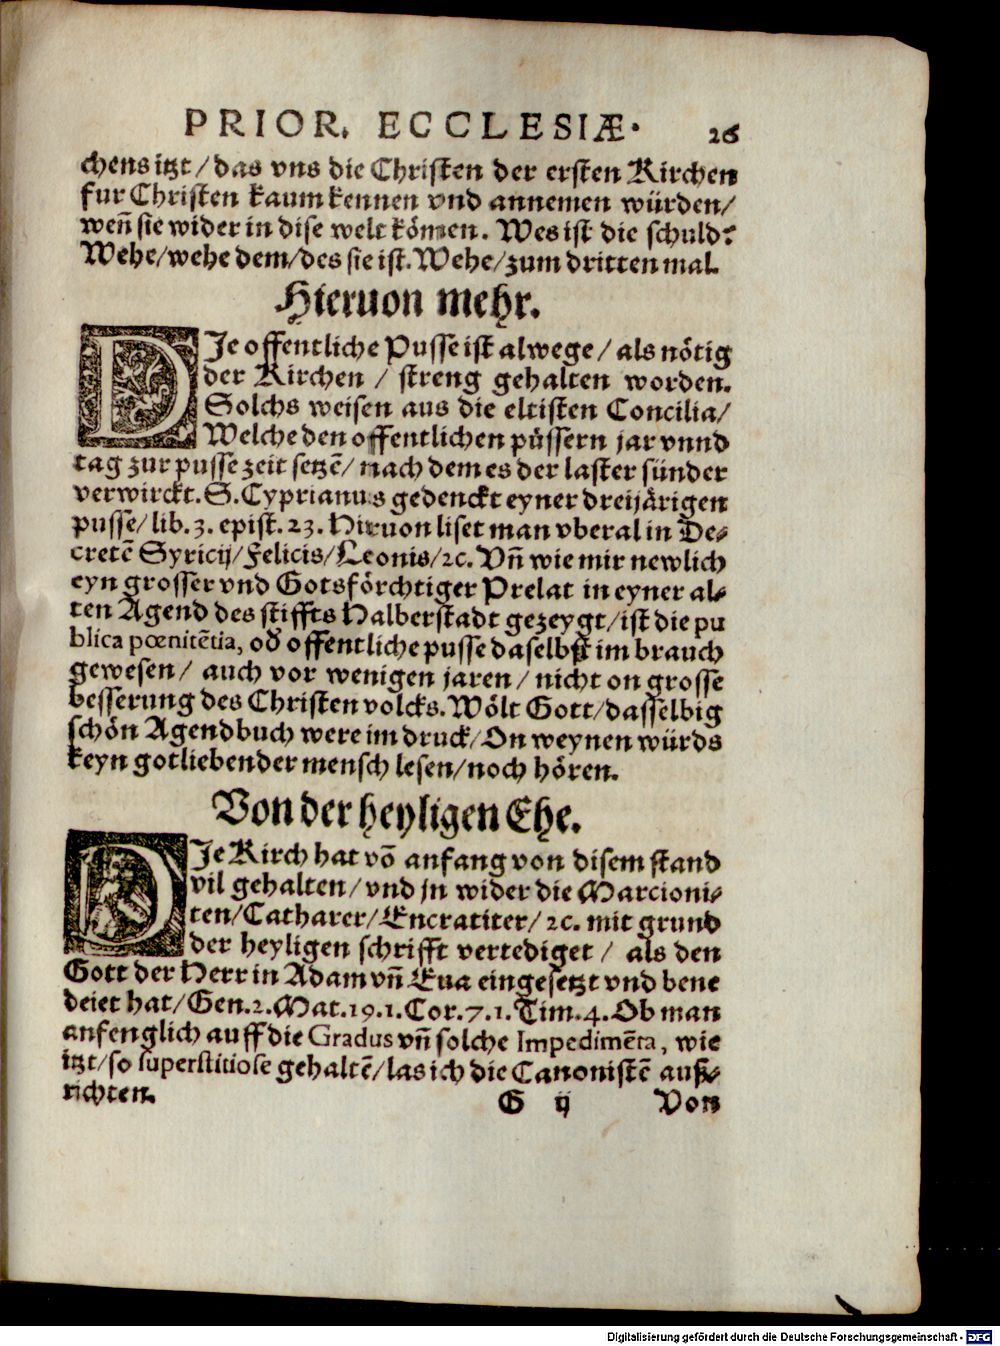 PRIOR. ECCLESIÆ. 26
chens itzt / das vns die Christen der ersten Kirchen
fur Christen kaum kennen vnd annemen würden /
weñ sie wider in dise welt kömen. Wes ist die schuld?
Wehe / wehe dem / des sie ist. Wehe / zum dritten mal.
Hieruon mehr.
DJe offentliche Pusse ist alwege / als nötig
der Kirchen / streng gehalten worden.
Solchs weisen aus die eltisten Concilia /
Welche den offentlichen püssern jar vnnd
tag zur pusse zeit setzē / nach dem es der laster sünder
verwirckt. S. Cyprianus gedenckt eyner dreijärigen
pusse / lib. 3. epist. 23. Hiruon liset man vberal in De⸗
cretē Syricij / Felicis / Leonis / ꝛc. Vñ wie mir newlich
eyn grosser vnd Gotsförchtiger Prelat in eyner al⸗
ten Agend des stiffts Halberstadt gezeygt / ist die pu
blica pœnitētia, od offentliche pusse daselbst im brauch
gewesen / auch vor wenigen jaren / nicht on grosse
besserung des Christen volcks. Wölt Gott / dasselbig
schön Agendbuch were im druck / On weynen würds
keyn gotliebender mensch lesen / noch hören.
Von der heyligen Ehe.
DJe Kirch hat vō anfang von disem stand
vil gehalten / vnd jn wider die Marcioni⸗
ten / Catharer / Encratiter / ꝛc. mit grund
der heyligen schrifft vertediget / als den
Gott der Herr in Adam vñ Eua eingesetzt vnd bene
deiet hat / Gen. 2. Mat. 19. 1. Cor. 7. 1. Tim. 4. Ob man
anfenglich auff die Gradus vñ solche Impedimēta, wie
itzt / so superstitiose gehaltē / las ich die Canonistē auß⸗
richten.
G ij Von
Digitalisierung gefördert durch die Deutsche Forschungsgemeinschaft - DFG